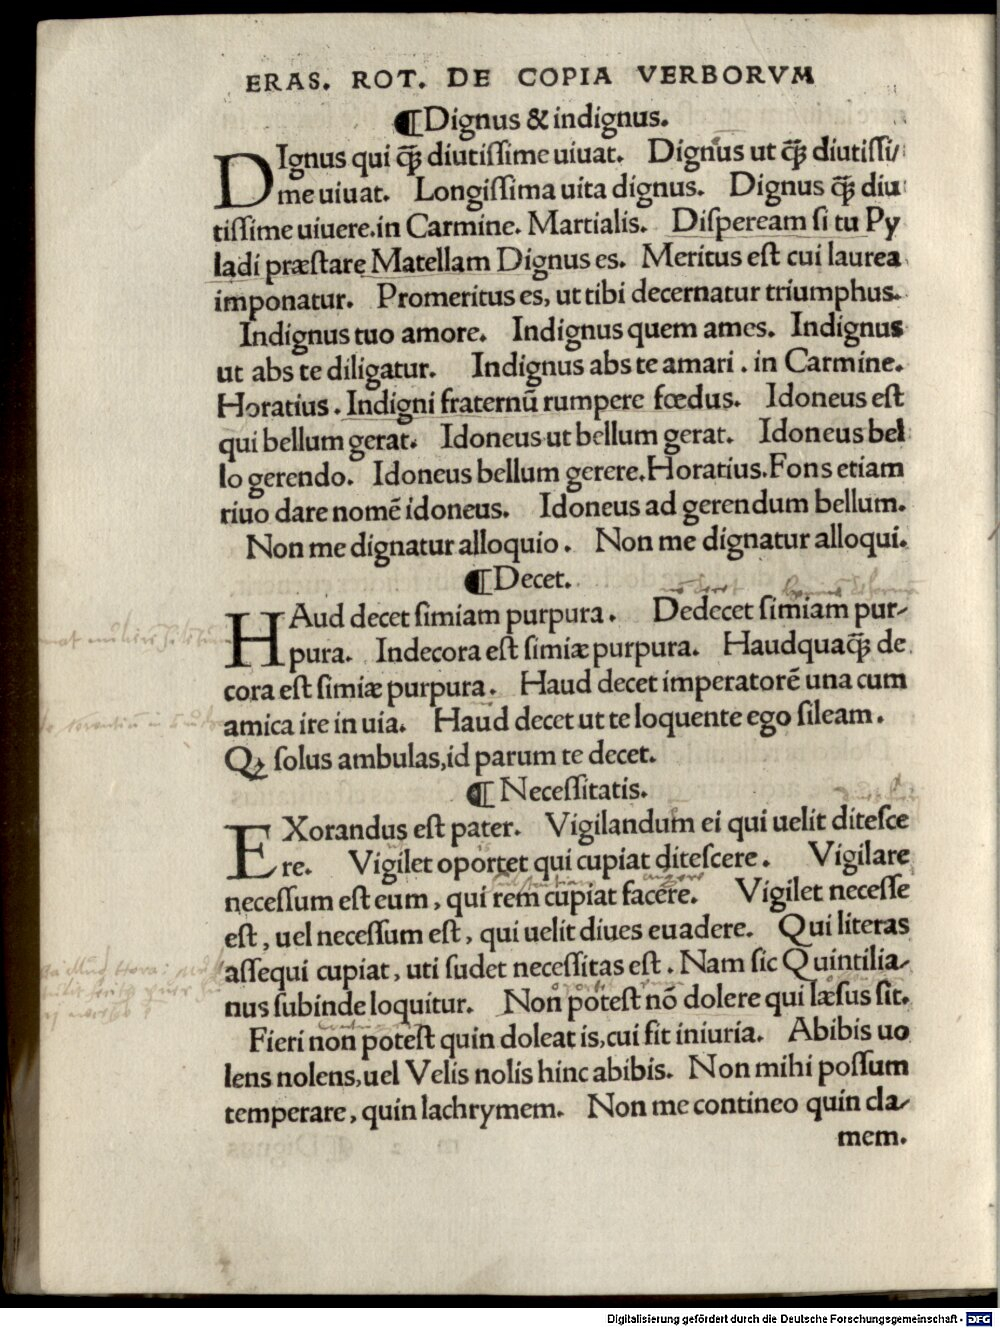 ERAS. ROT. DE COPIA VERBORVM
¶Dignus & indignus.
DIgnus qui q̄ꝫ diutiſſime uiuat. Dignus ut q̄ꝫ diutiſſi/
me uiuat. Longiſſima uita dignus. Dignus q̄ꝫ diu
tiſſime uiuere.in Carmine. Martialis. Diſpeream ſi tu Py
ladi præſtare Matellam Dignus es. Meritus eſt cui laurea
imponatur. Promeritus es, ut tibi decernatur triumphus.
Indignus tuo amore. Indignus quem ames. Indignus
ut abs te diligatur. Indignus abs te amari . in Carmine.
Horatius . Indigni fraternū rumpere fœdus. Idoneus eſt
qui bellum gerat. Idoneus ut bellum gerat. Idoneus bel
lo gerendo. Idoneus bellum gerere.Horatius.Fons etiam
riuo dare nomē idoneus. Idoneus ad gerendum bellum.
Non me dignatur alloquio . Non me dignatur alloqui.
¶Decet.
HAud decet ſimiam purpura . Dedecet ſimiam pur/
pura. Indecora eſt ſimiæ purpura. Haudquaq̄ꝫ de
cora eſt ſimiæ purpura . Haud decet imperatorē una cum
amica ire in uia. Haud decet ut te loquente ego ſileam .
Qꝫ ſolus ambulas,id parum te decet.
¶ Neceſſitatis.
EXorandus eſt pater. Vigilandum ei qui uelit diteſce
re. Vigilet oportet qui cupiat diteſcere . Vigilare
neceſſum eſt eum , qui rem cupiat facere. Vigilet neceſſe
eſt , uel neceſſum eſt , qui uelit diues euadere. Qui literas
aſſequi cupiat , uti ſudet neceſſitas eſt . Nam ſic Quintilia/
nus ſubinde loquitur. Non poteſt nō dolere qui læſus ſit.
Fieri non poteſt quin doleat is,cui fit iniuria. Abibis uo
lens nolens,uel Velis nolis hinc abibis. Non mihi poſſum
temperare , quin lachrymem. Non me contineo quin cla/
mem.
Digitalisierung gefördert durch die Deutsche Forschungsgemeinschaft - DFG